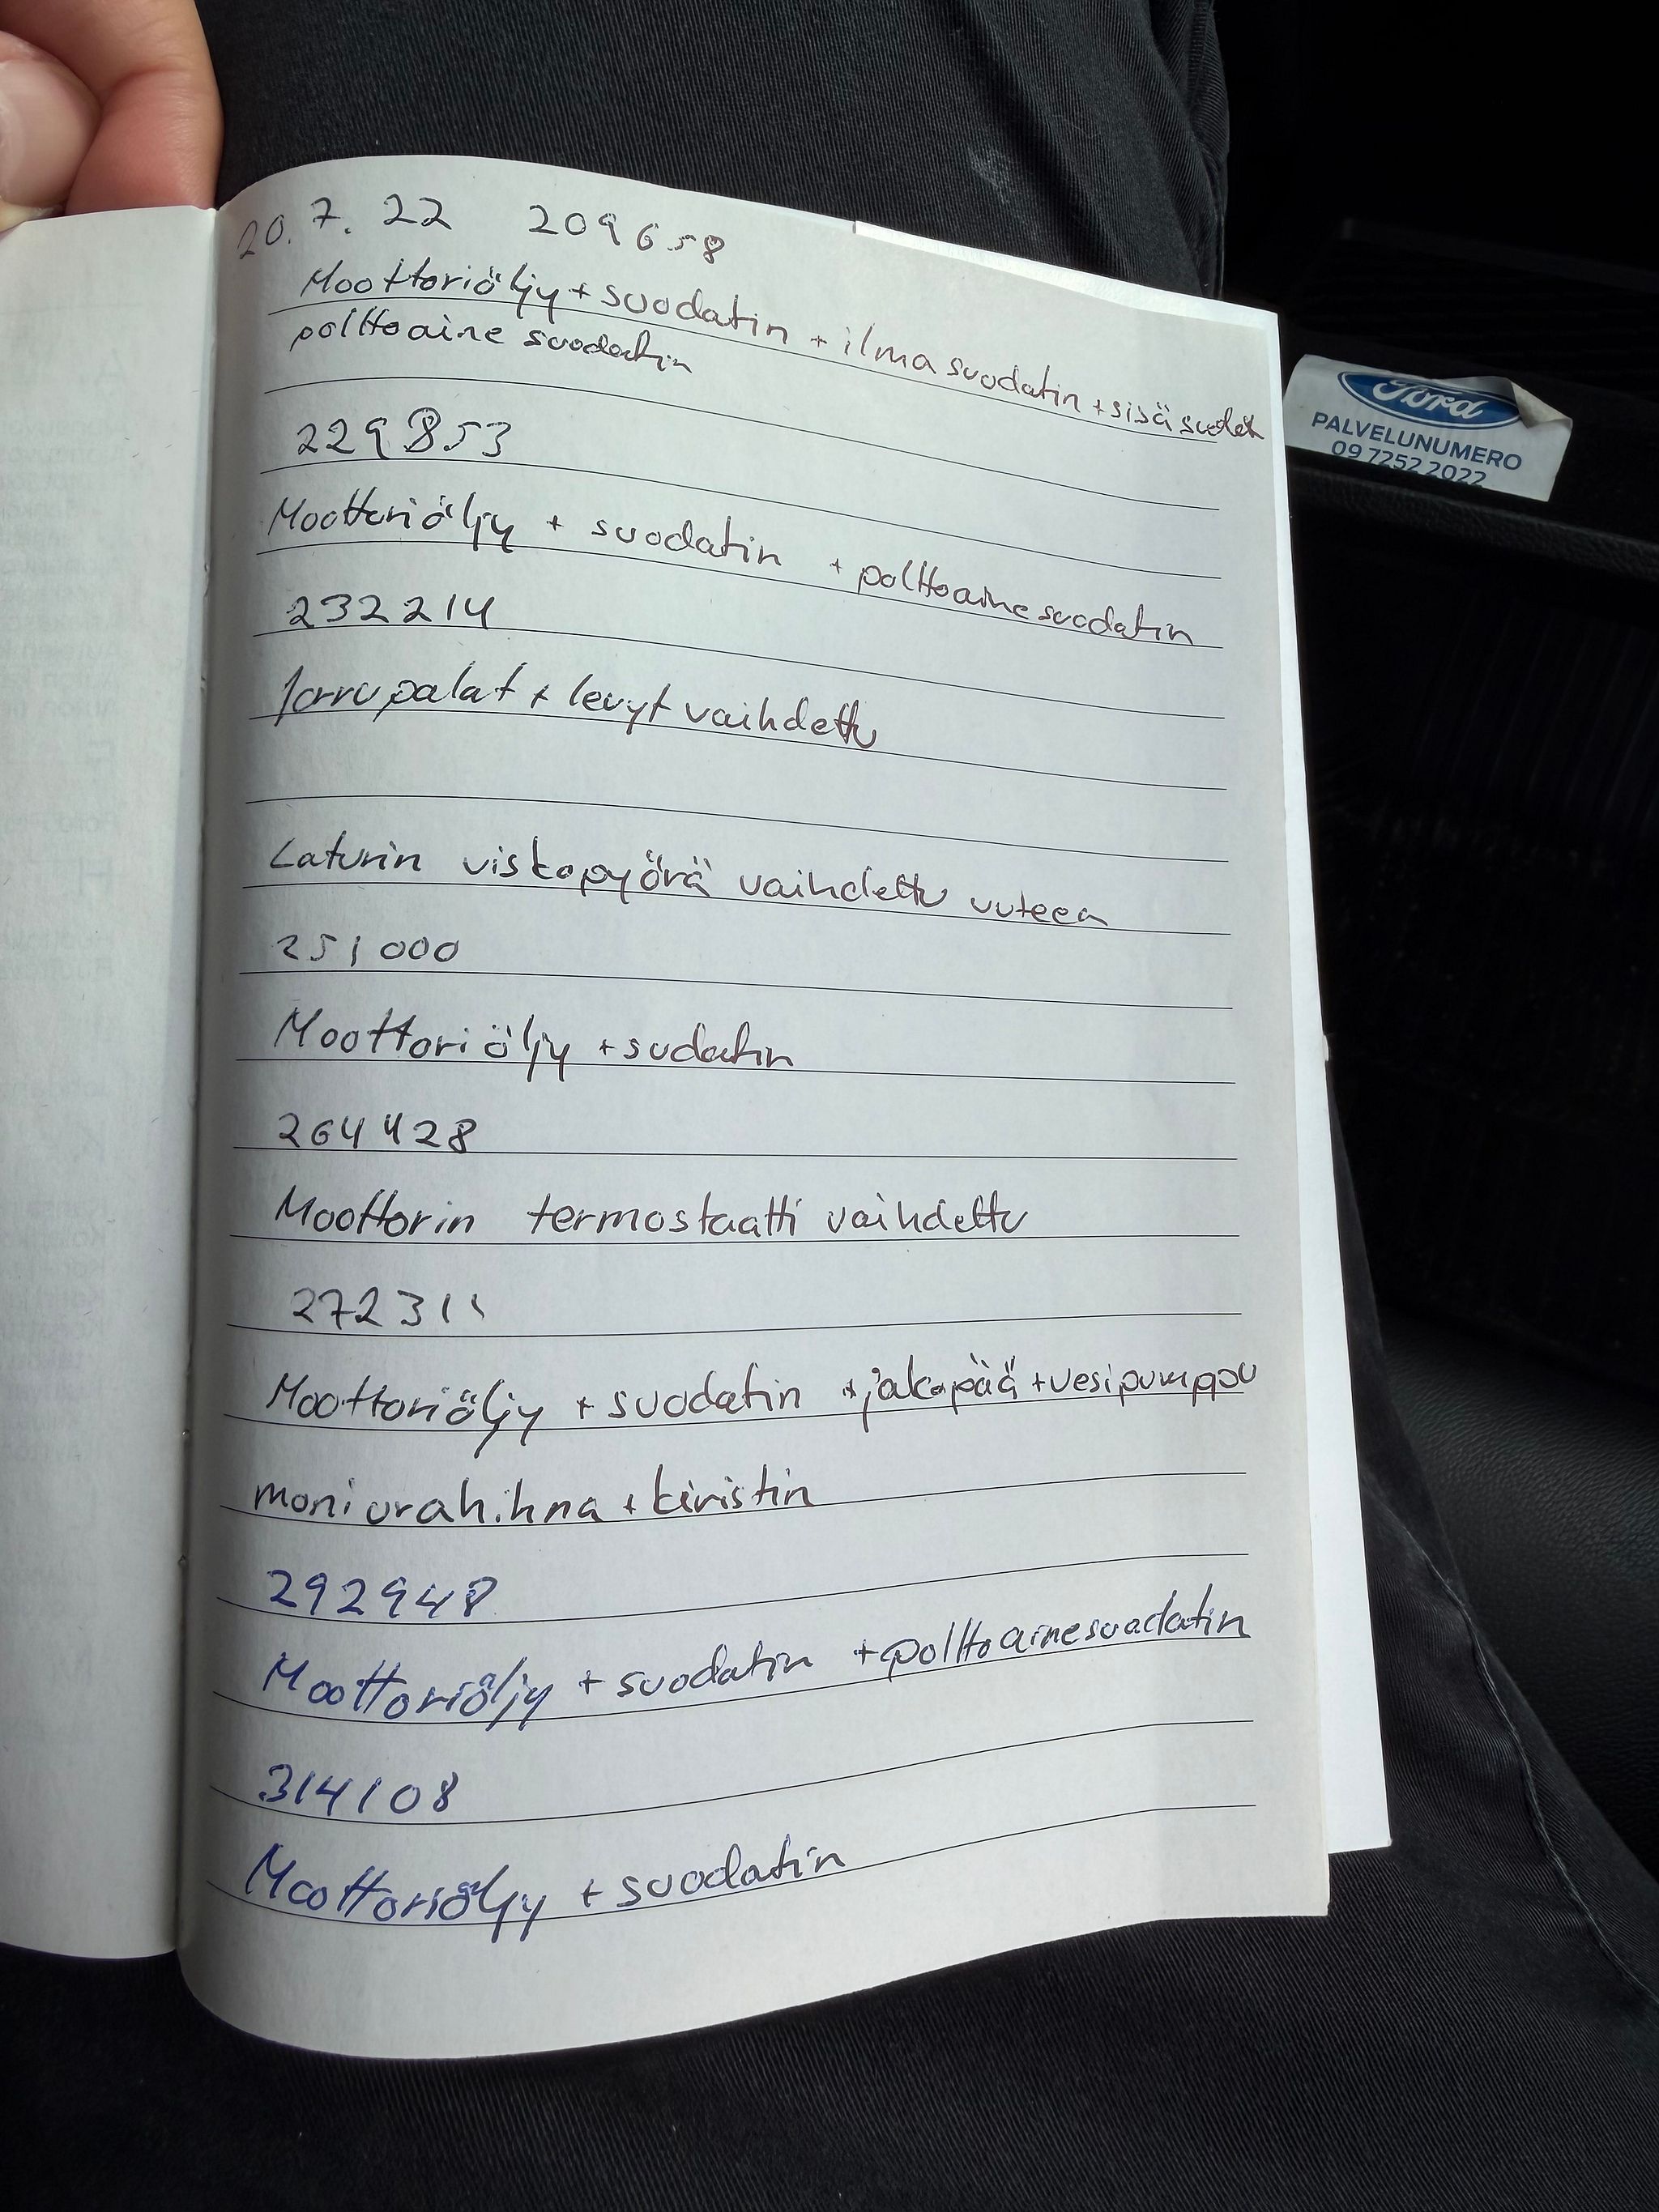 20.7.22 209658
Moottoriöljy + suodatin + ilmasuodatin + sisäsuodat
polttoaine suodatin
229853
Moottoriöljy + suodatin + polttoainesuodatin
232214
Jarrupalat + levyt vaihdettu
Laturin viskopyörä vaihdettu uuteen
251000
Moottoriöljy + sudatin
264428
Moottorin termostaatti vaihdettu
272311
Moottoriöljy + suodatin + jakopää + vesipumppu
moniurahihna + kiristin
292948
Moottoriöljy + suodatin + polttoainesuodatin
314108
Moottoriöljy + suodatin
Ford
PALVELUNUMERO
09 7252 2022